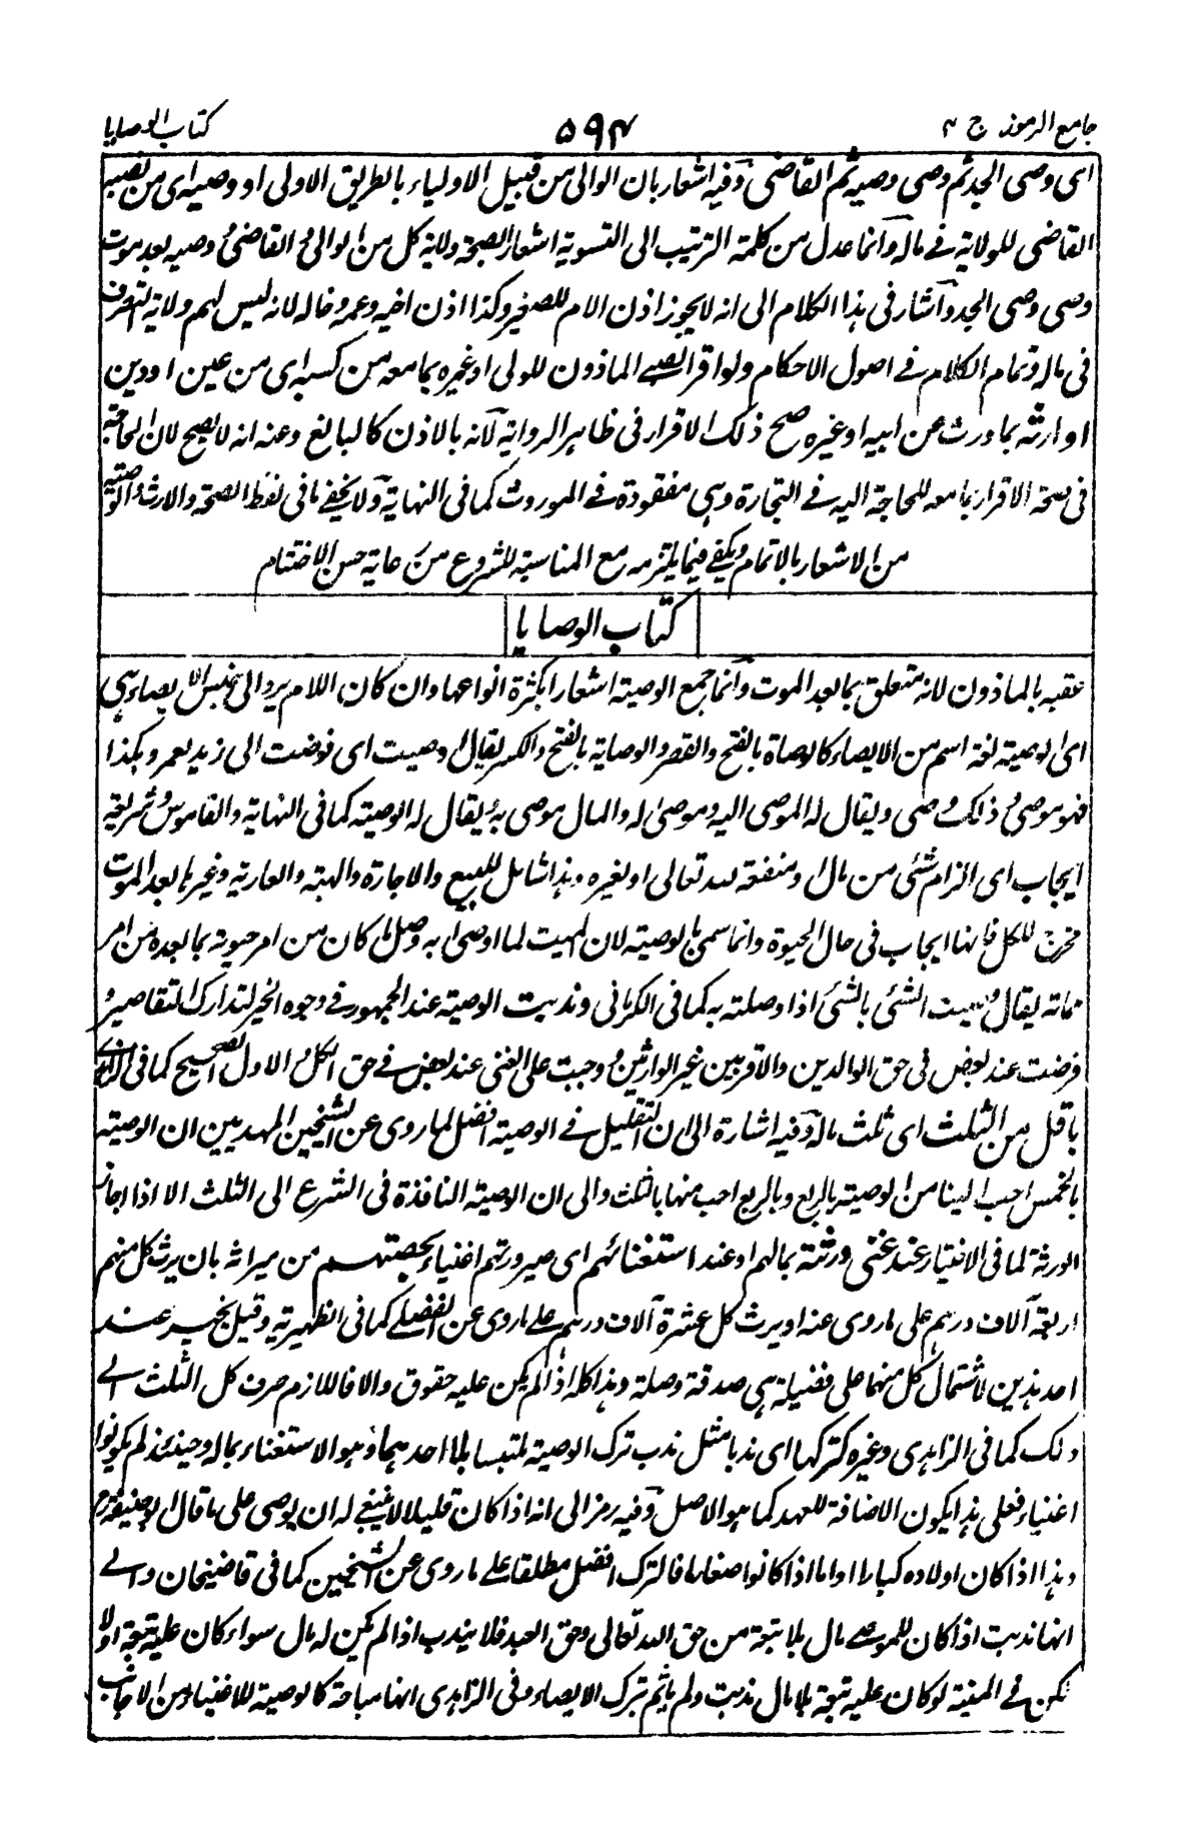 جامع الرموز ج ٢ ٥٩٤ كتاب الوصايا
اى وصى الجد ثم وصى وصيه ثم القاضى وفيه اشعار بان الوالى من قبيل الاولياء بالطريق الاولى او وصيه اى من نصبه
القاضى للولاية فى ماله وانما عدل من كلمة الترتيب الى التسوية اشعارا لصحة ولاية كل من الوالى والقاضى ووصيه بعد موت
وصى وصى الجد واشار فى هذا الكلام الى انه لا يجوز اذن الام للصغير وكذا اذن اخيه وعمه وخاله لانه ليس لهم ولاية التصرف
فى ماله وتمام الكلام فى اصول الاحكام ولو اقر الصبى الماذون للولى او غيره بما معه من كسبه اى من عين او دين
او ارثه بما ورث من ابيه او غيره صح ذلك الاقرار فى ظاهر الرواية لانه بالاذن كالبالغ وعنه انه لا يصح لان الحاجة
فى صحة الاقرار بما معه للحاجة اليه فى التجارة وهى مفقودة فى الموروث كما فى النهاية ولا يخفى ما فى لفظ الصحة والارث والوصية
من الاشعار بالاتمام ويكفى فيما يلتزمه مع المناسبة للشروع من رعاية حسن الاختتام
كتاب الوصايا
عقبه بالماذون لانه متعلق بما بعد الموت وانما جمع الوصية اشعارا بكثرة انواعها وان كان اللام يرد الى جنس الايصاء هى
اى الوصية لغة اسم من الايصاء كالوصاة بالفتح والقصر والوصاية بالفتح والكسر يقال اوصيت اى فوضت الى زيد لعمرو بكذا
فهو موصى وذلك وصى ويقال له الموصى اليه وموصى له والمال موصى به ويقال له الوصية كما فى النهاية والقاموس وشريعة
ايجاب اى الزام شئى من مال او منفعة لله تعالى او لغيره وهذا شامل للبيع والاجارة والهبة والعارية وغيرها بعد الموت
مخرج للكل فانها ايجاب فى حال الحيوة وانما سمى بالوصية لان الميت لما اوصى به وصل ما كان من امر حيوته بما بعده من امر
مماته يقال وصيت الشئى بالشئى اذا وصلته به كما فى الكرمانى وندبت الوصية عند الجمهور فى وجوه الخير لتدارك التقاصير و
فرضت عند بعض فى حق الوالدين والاقربين غير الوارثين ووجبت على الغنى عند بعض فى حق الكل والاول الصحيح كما فى
باقل من الثلث اى ثلث ماله وفيه اشارة الى ان التقليل فى الوصية افضل لما روى عن الشيخين المهديين ان الوصية
بالخمس احب الينا من الوصية بالربع وبالربع احب منها بالثلث والى ان الوصية النافذة فى الشرع الى الثلث الا اذا اجاز
الورثة لما فى الاختيار عند غنى ورثته بمالهم او عند استغنائهم اى صيرورتهم اغنياء بحصتهم من ميراثه بان يرث كل منهم
اربعة آلاف درهم على ما روى عنه او يرث كل عشرة آلاف درهم على ما روى عن الفضلى كما فى الظهيرية وقيل يخير عند
احد هذين لاشتمال كل منهما على فضيلة هى صدقة وصلة وهذا كله اذا لم يكن عليه حقوق والا فاللازم صرف كل الثلث الى
ذلك كما فى الزاهدى وغيره كتركها اى ندبا مثل ندب ترك الوصية ملتبسا بلا احدهما وهو الاستغناء بماله وحينئذ لم يكونوا
اغنياء فعلى هذا يكون الاضافة للعهد كما هو الاصل وفيه رمز الى انه اذا كان قليلا لا ينبغى له ان يوصى على ما قال ابو حنيفة رح
وهذا اذا كان اولاده كبارا واما اذا كانوا صغارا فالترك افضل مطلقا على ما روى عن الشيخين كما فى قاضيخان والى
انها ندبت اذا كان للموصى مال بلا تبعة من حق الله تعالى وحق العبد فلا يندب اذا لم يكن له مال سواء كان عليه تبعة او لا
لكن فى المنية لو كان عليه تبعة بلا مال ندبت ولم ياثم بترك الايصاء وفى الزاهدى انها مباحة كالوصية للاغنياء من الاجانب